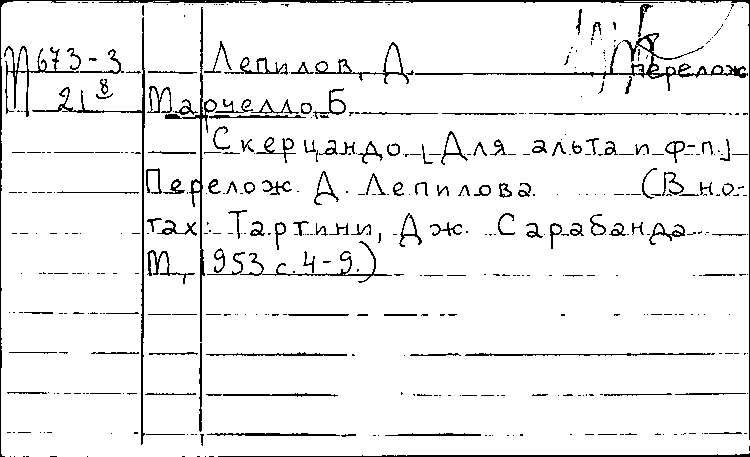 М 673-3 Лепилов, Д. перелож
21 8 Марчелло, Б.
Скерцандо. [Для альта и ф-п.]
Перелож. Д. Лепилова (В но-
тах: Тартини, Дж. Сарабанда
М., 1953 с. 4-9.)